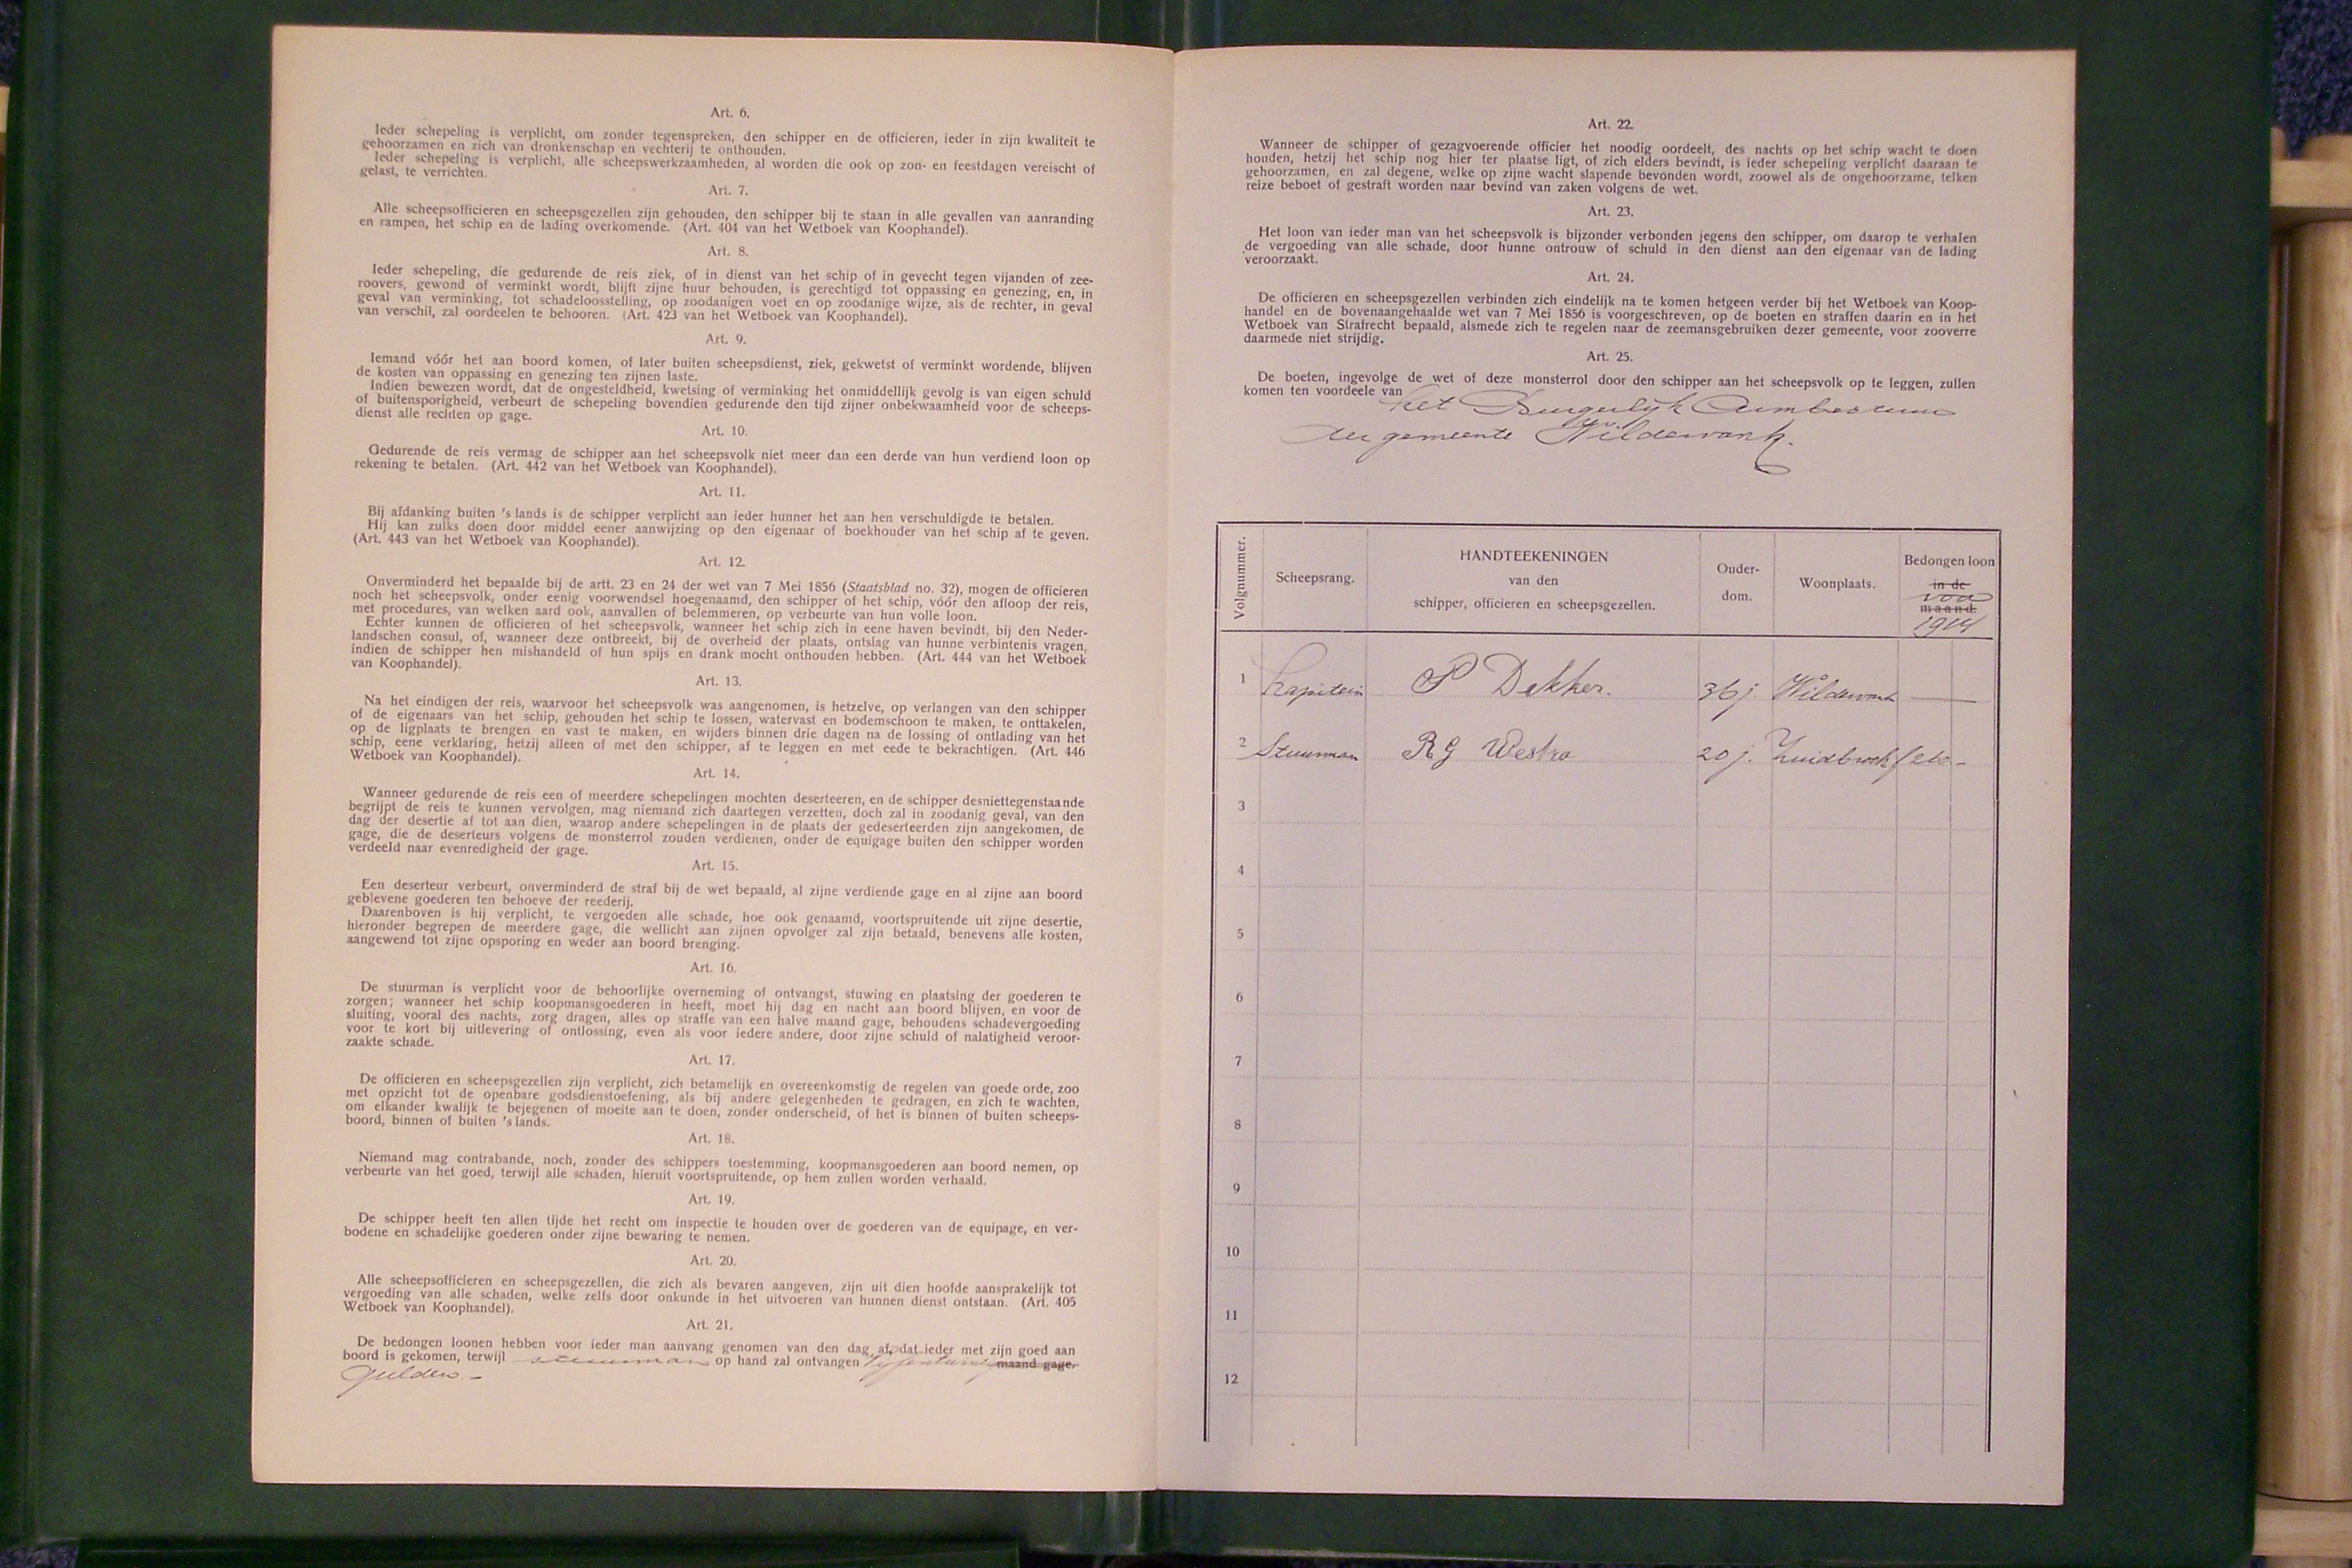 Art. 6.
Ieder schepeling is verplicht, om zonder tegenspreken, den schipper en de officieren, ieder in zijn kwaliteit te
gehoorzamen en zich van dronkenschap en vechterij te onthouden.
Ieder schepeling is verplicht, alle scheepswerkzaamheden, al worden die ook op zon- en feestdagen vereischt of
gelast, te verrichten.
Art. 7.
Alle scheepsofficieren en scheepsgezellen zijn gehouden, den schipper bij te staan in alle gevallen van aanranding
en rampen, het schip en de lading overkomende. (Art. 404 van het Wetboek van Koophandel).
Art. 8.
Ieder schepeling, die gedurende de reis ziek, of in dienst van het schip of in gevecht tegen vijanden of zee-
roovers, gewond of verminkt wordt, blijft zijne huur behouden, is gerechtigd tot oppassing en genezing, en, in
geval van verminking, tot schadeloosstelling, op zoodanigen voet en op zoodanige wijze, als de rechter, in geval
van verschil, zal oordeelen te behooren. (Art. 423 van het Wetboek van Koophandel).
Art. 9.
Iemand vóór het aan boord komen, of later buiten scheepsdienst, ziek, gekwetst of verminkt wordende, blijven
de kosten van oppassing en genezing ten zijnen laste.
Indien bewezen wordt, dat de ongesteldheid, kwetsing of verminking het onmiddellijk gevolg is van eigen schuld
of buitensporigheid, verbeurt de schepeling bovendien gedurende den tijd zijner onbekwaamheid voor de scheeps-
dienst alle rechten op gage.
Art. 10.
Gedurende de reis vermag de schipper aan het scheepsvolk niet meer dan een derde van hun verdiend loon op
rekening te betalen. (Art. 442 van het Wetboek van Koophandel).
Art. 11.
Bij afdanking buiten 's lands is de schipper verplicht aan ieder hunner het aan hen verschuldigde te betalen.
Hij kan zulks doen door middel eener aanwijzing op den eigenaar of boekhouder van het schip af te geven.
(Art. 443 van het Wetboek van Koophandel).
Art. 12.
Onverminderd het bepaalde bij de artt. 23 en 24 der wet van 7 Mei 1856 (Staatsblad no. 32), mogen de officieren
noch het scheepsvolk, onder eenig voorwendsel hoegenaamd, den schipper of het schip, vóór den afloop der reis,
met procedures, van welken aard ook, aanvallen of belemmeren, op verbeurte van hun volle loon.
Echter kunnen de officieren of het scheepsvolk, wanneer het schip zich in eene haven bevindt, bij den Neder-
landschen consul, of, wanneer deze ontbreekt, bij de overheid der plaats, ontslag van hunne verbintenis vragen,
indien de schipper hen mishandeld of hun spijs en drank mocht onthouden hebben. (Art. 444 van het Wetboek
van Koophandel).
Art. 13.
Na het eindigen der reis, waarvoor het scheepsvolk was aangenomen, is hetzelve, op verlangen van den schipper
of de eigenaars van het schip, gehouden het schip te lossen, watervast en bodemschoon te maken, te onttakelen,
op de ligplaats te brengen en vast te maken, en wijders binnen drie dagen na de lossing of ontlading van het
schip, eene verklaring, hetzij alleen of met den schipper, af te leggen en met eede te bekrachtigen. (Art. 446
Wetboek van Koophandel).
Art. 14.
Wanneer gedurende de reis een of meerdere schepelingen mochten deserteeren, en de schipper desniettegenstaande
begrijpt de reis te kunnen vervolgen, mag niemand zich daartegen verzetten, doch zal in zoodanig geval, van den
dag der desertie af tot aan dien, waarop andere schepelingen in de plaats der gedeserteerden zijn aangekomen, de
gage, die de deserteurs volgens de monsterrol zouden verdienen, onder de equigage buiten den schipper worden
verdeeld naar evenredigheid der gage.
Art. 15.
Een deserteur verbeurt, onverminderd de straf bij de wet bepaald, al zijne verdiende gage en al zijne aan boord
geblevene goederen ten behoeve der reederij.
Daarenboven is hij verplicht, te vergoeden alle schade, hoe ook genaamd, voortspruitende uit zijne desertie,
hieronder begrepen de meerdere gage, die wellicht aan zijnen opvolger zal zijn betaald, benevens alle kosten,
aangewend tot zijne opsporing en weder aan boord brenging.
Art. 16.
De stuurman is verplicht voor de behoorlijke overneming of ontvangst, stuwing en plaatsing der goederen te
zorgen; wanneer het schip koopmansgoederen in heeft, moet hij dag en nacht aan boord blijven, en voor de
sluiting, vooral des nachts, zorg dragen, alles op straffe van een halve maand gage, behoudens schadevergoeding
voor te kort bij uitlevering of ontlossing, even als voor iedere andere, door zijne schuld of nalatigheid veroor-
zaakte schade.
Art. 17.
De officieren en scheepsgezellen zijn verplicht, zich betamelijk en overeenkomstig de regelen van goede orde, zoo
met opzicht tot de openbare godsdienstoefening, als bij andere gelegenheden te gedragen, en zich te wachten,
om elkander kwalijk te bejegenen of moeite aan te doen, zonder onderscheid, of het is binnen of buiten scheeps-
boord, binnen of buiten 's lands.
Art. 18.
Niemand mag contrabande, noch, zonder des schippers toestemming, koopmansgoederen aan boord nemen, op
verbeurte van het goed, terwijl alle schaden, hieruit voortspruitende, op hem zullen worden verhaald.
Art. 19.
De schipper heeft ten allen tijde het recht om inspectie te houden over de goederen van de equipage, en ver-
bodene en schadelijke goederen onder zijne bewaring te nemen.
Art. 20.
Alle scheepsofficieren en scheepsgezellen, die zich als bevaren aangeven, zijn uit dien hoofde aansprakelijk tot
vergoeding van alle schaden, welke zelfs door onkunde in het uitvoeren van hunnen dienst ontstaan. (Art. 405
Wetboek van Koophandel).
Art. 21.
De bedongen loonen hebben voor ieder man aanvang genomen van den dag af, dat ieder met zijn goed aan
boord is gekomen, terwijl stuurman op hand zal ontvangen maand gage.
Gulden.-
Art. 22.
Wanneer de schipper of gezagvoerende officier het noodig oordeelt, des nachts op het schip wacht te doen
houden, hetzij het schip nog hier ter plaatse ligt, of zich elders bevindt, is ieder schepeling verplicht daaraan te
gehoorzamen, en zal degene, welke op zijne wacht slapende bevonden wordt, zoowel als de ongehoorzame, telken
reize beboet of gestraft worden naar bevind van zaken volgens de wet.
Art. 23.
Het loon van ieder man van het scheepsvolk is bijzonder verbonden jegens den schipper, om daarop te verhalen
de vergoeding van alle schade, door hunne ontrouw of schuld in den dienst aan den eigenaar van de lading
veroorzaakt.
Art. 24.
De officieren en scheepsgezellen verbinden zich eindelijk na te komen hetgeen verder bij het Wetboek van Koop-
handel en de bovenaangehaalde wet van 7 Mei 1856 is voorgeschreven, op de boeten en straffen daarin en in het
Wetboek van Strafrecht bepaald, alsmede zich te regelen naar de zeemansgebruiken dezer gemeente, voor zooverre
daarmede niet strijdig.
Art. 25.
De boeten, ingevolge de wet of deze monsterrol door den schipper aan het scheepsvolk op te leggen, zullen
komen ten voordeele van het Burgerlijk Armbestuur
der gemeente Wildervank.
Volgnummer.
Scheepsrang.
HANDTEEKENINGEN
van den
schipper, officieren en scheepsgezellen.
Ouder-
dom.
Woonplaats.
Bedongen loon
in de
voor
maand.
1914
1 Kapitein P Dekker. 36 j. Wildervank —
2 Stuurman R G Westra 20 j. Zuidbroek f 210.-
3
4
5
6
7
8
9
10
11
12